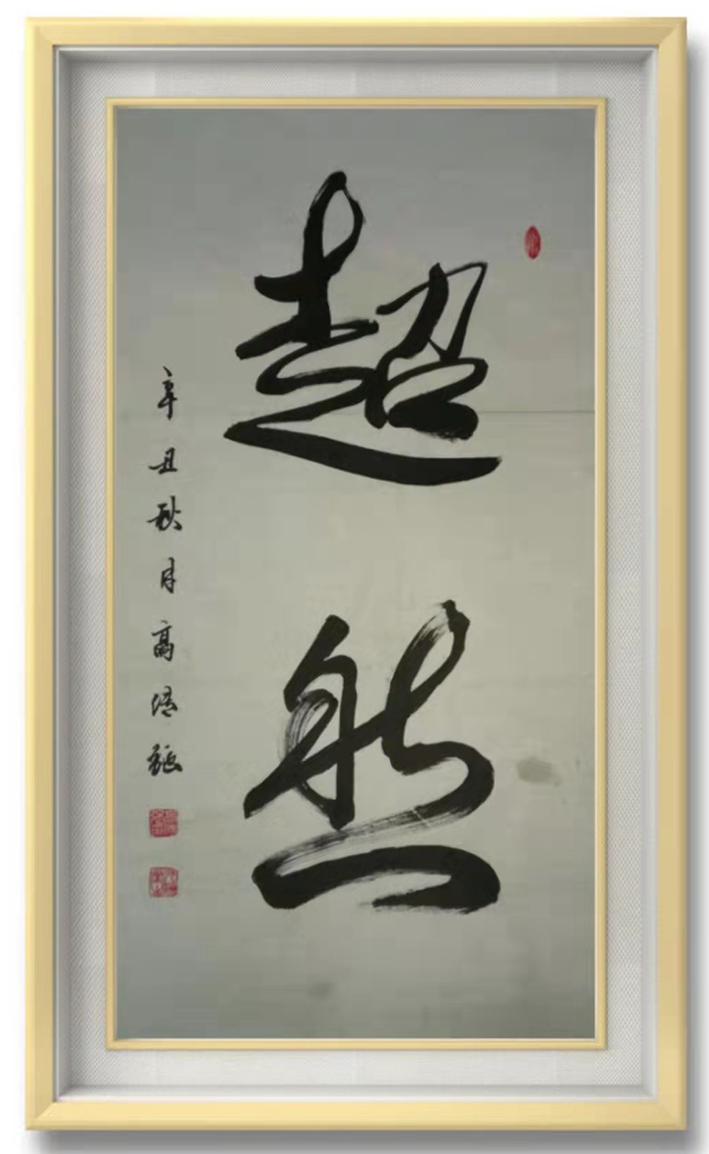 超然
辛丑秋月高培